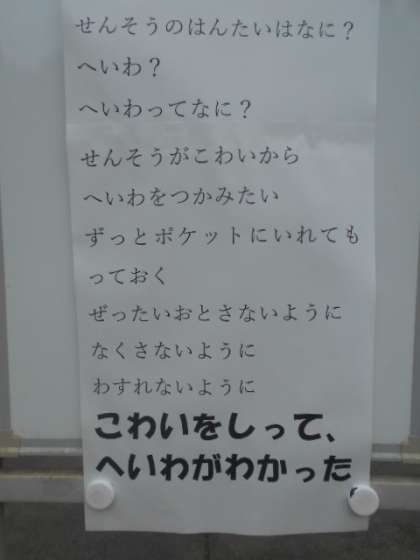 せんそうのはんたいはなに？
へいわ？
へいわってなに？
せんそうがこわいから
へいわをつかみたい
ずっとポケットにいれても
っておく
ぜったいおとさないように
なくさないように
わすれないように
こわいをしって、
へいわがわかった